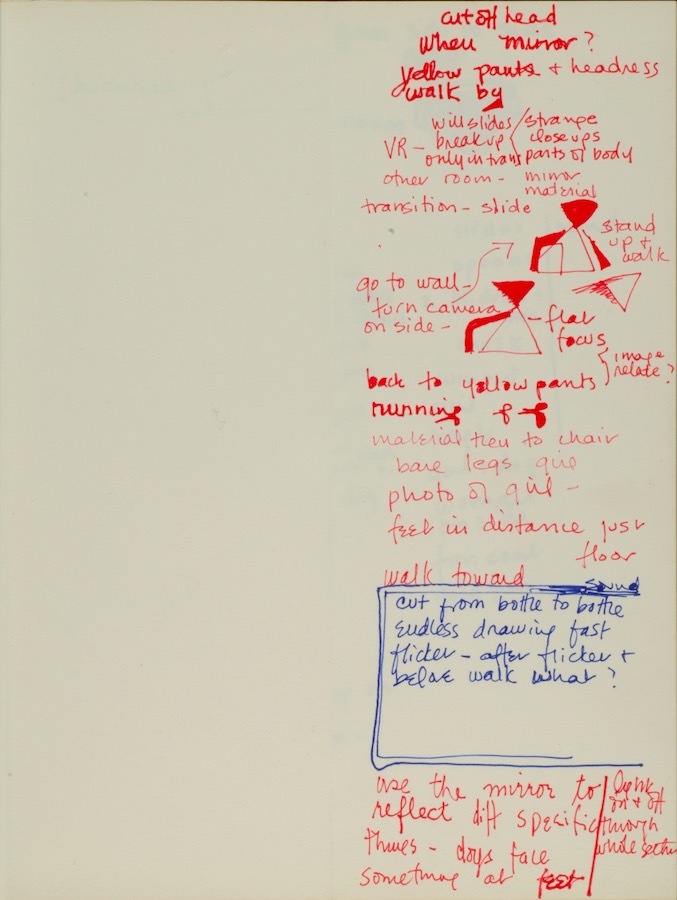 cut off head
when mirror?
yellow pants + headress
walk by
will slides
VR - break up
only in trans
strange
close ups
parts of body
other room - mirror
material
transition - slide
stand
up +
walk
go to wall -
turn camera
on side -
- flat
focus
image
relate?
back to yellow pants
running
material to chair
bare legs girl
photo of girl -
feet in distance just
floor
walk toward
sound
cut from bottle to bottle
endless drawing fast
flicker - after flicker +
before walk what?
use the mirror to
reflect diff specific
things - dogs face
something at feet
on + off
through
whole section